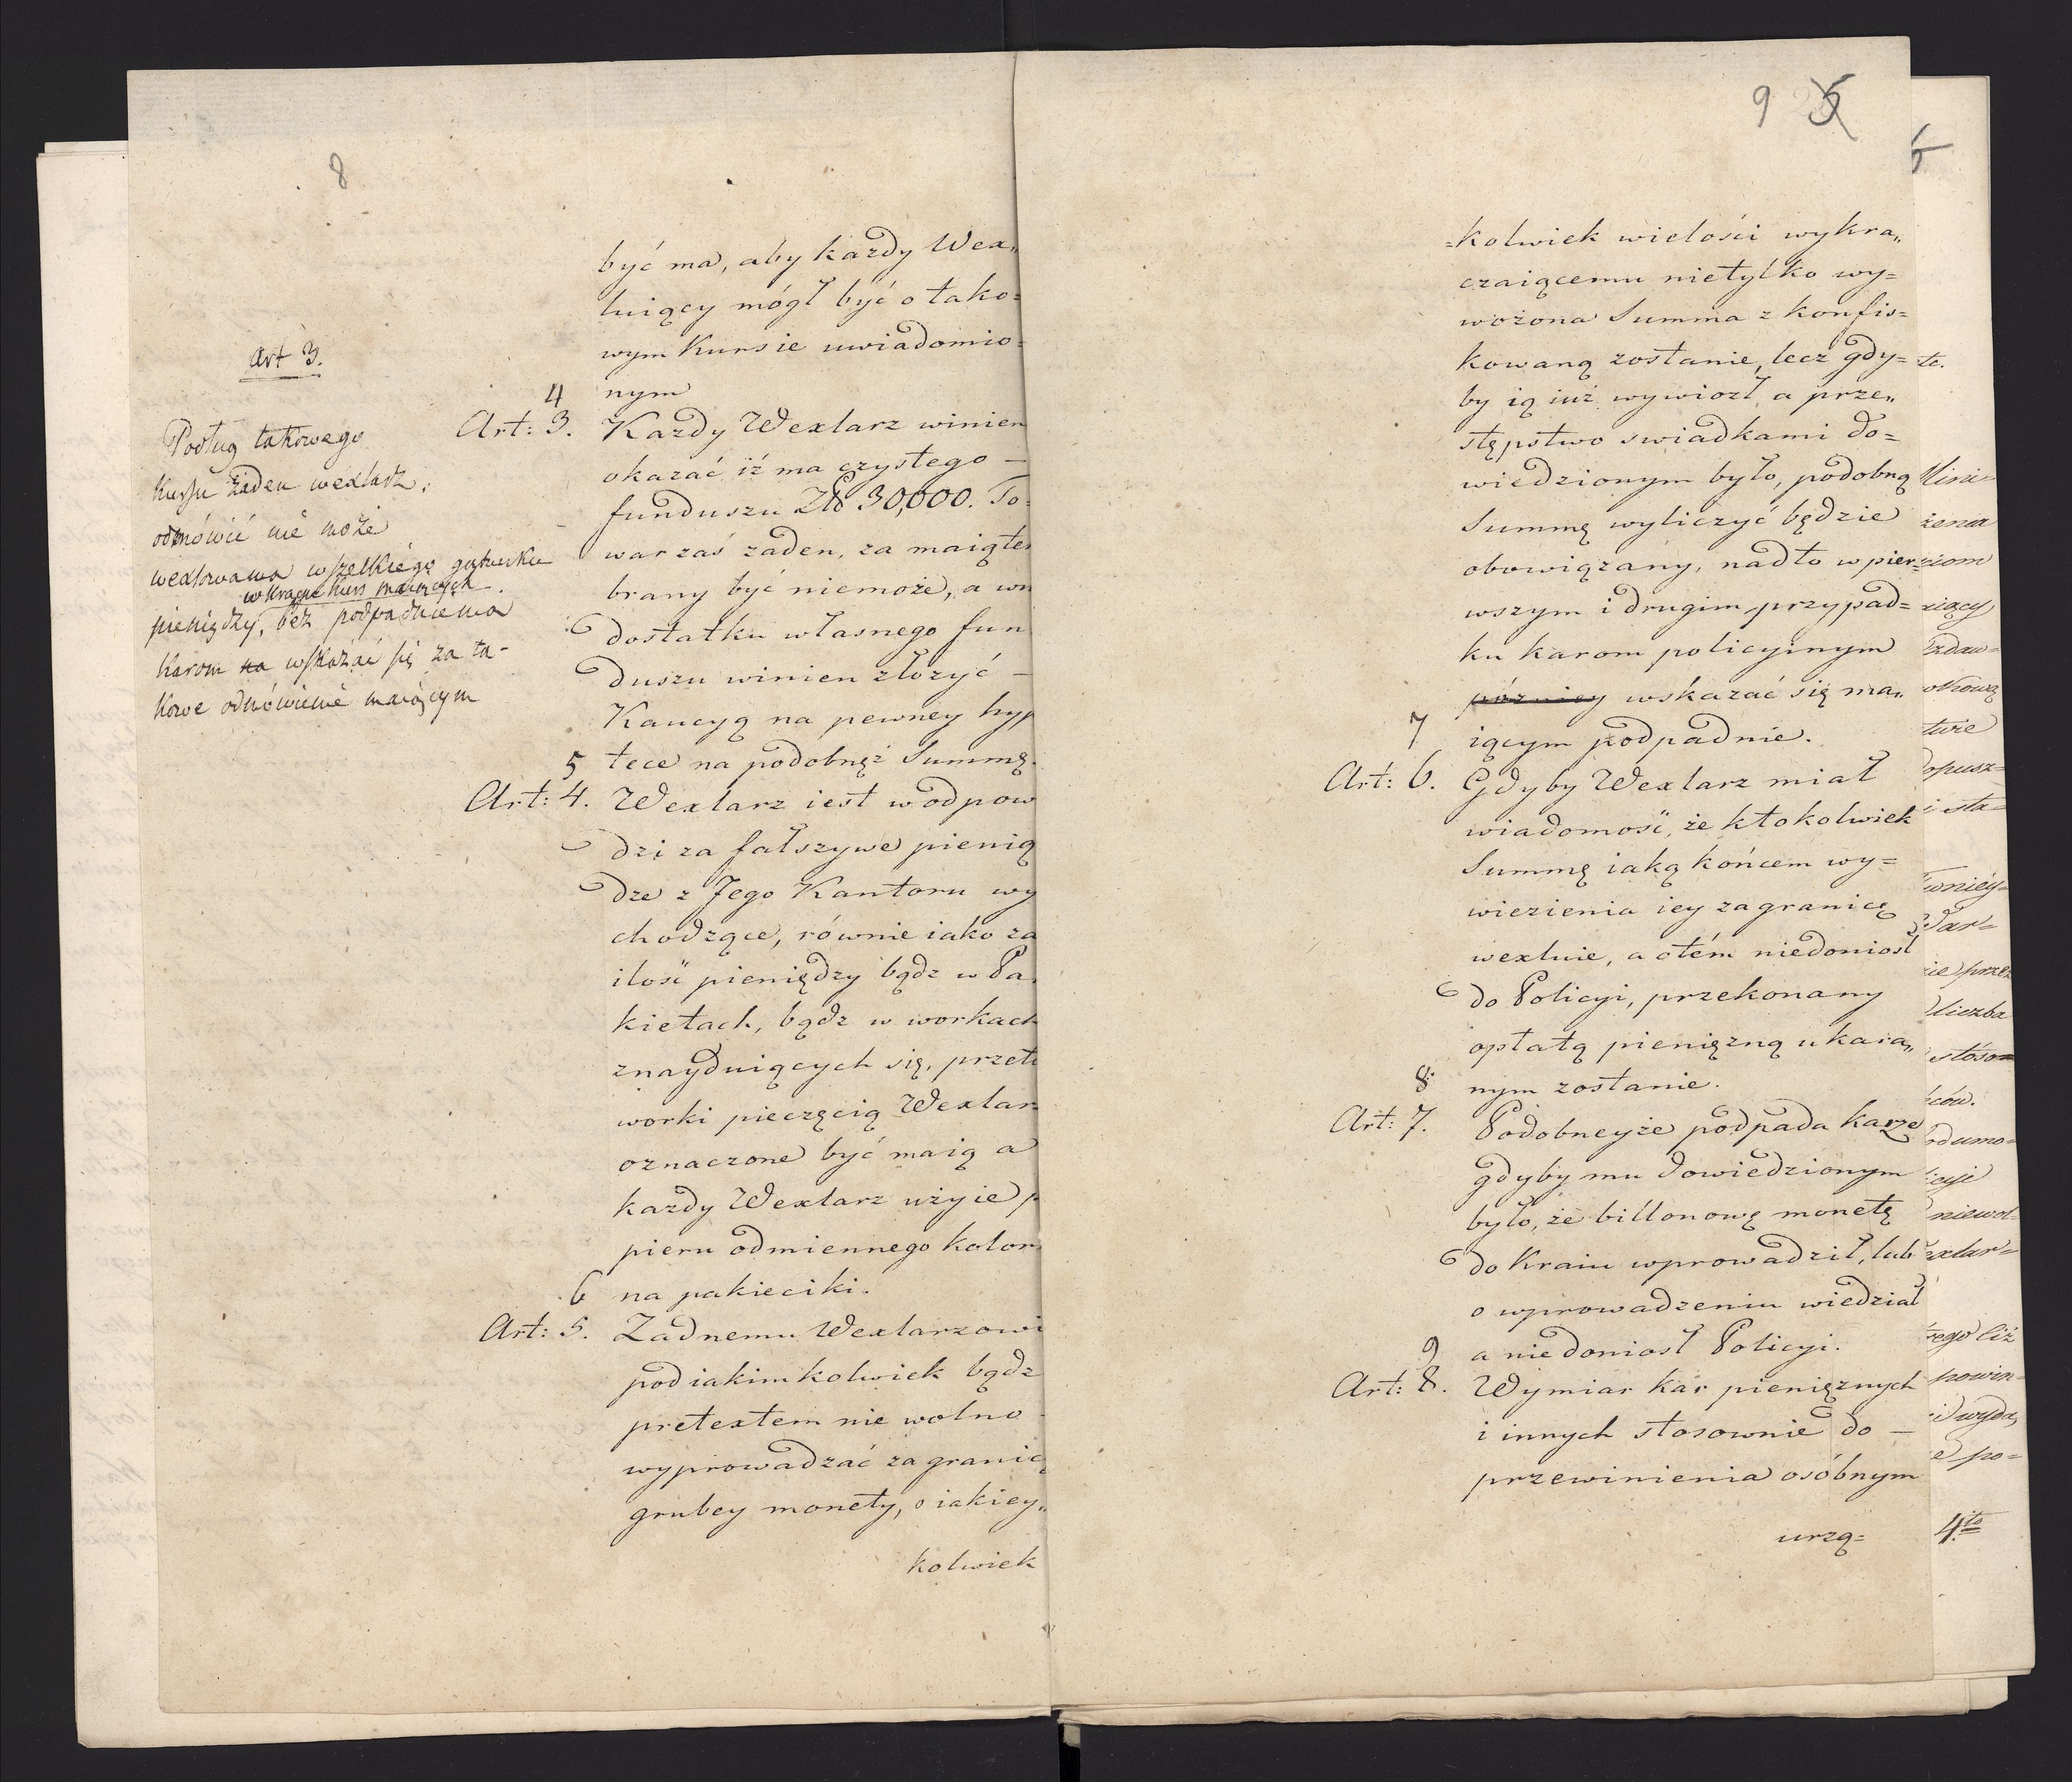 8
być ma, aby każdy Wex„
luiący mógł być o tako=
wym Kursie uwiadomio=
nym
Art 3.
Podług takowego
Kursu żaden wexlarz,
odmówić nie może
wexlowania wszelkiego gatunku
w kraju kurs maiących
pieniędzy, bez podpadnienia
karom na wskazać się za ta-
kowe odmówienie maiącym
4
Art: 3. Każdy Wexlarz winien
okazać iż ma czystego —
funduszu Zł 30,000. To=
war zaś żaden, za maiąte
brany być niemoże, a w n
dostatku własnego fun
duszu winien złożyć —
Kaucyą na pewney hyp
tece na podobnęż Summę.
5
Art: 4. Wexlarz iest w odpow
dzi za fałszywe pienią
dze z Jego Kantoru wy
chodzące, równie iako za
ilość pieniędzy bądz w Pa
kietach, bądz w workach
znayduiących się, przeto
worki pieczęcią Wexlar
oznaczone być maią a
każdy Wexlarz użyie p
pieru odmiennego kolor
na pakieciki.
6
Art: 5. Żadnemu Wexlarzowi
pod iakimkolwiek bądz
pretextem nie wolno
wyprowadzać za granicę
grubey monety, o iakiey„
kolwiek
9 5
=kolwiek wielości wykra„
czaiącemu nietylko wy=
wożona Summa z konfis=
kowaną zostanie, lecz gdy=
by ią iuż wywiozł a prze„
stępstwo swiadkami do=
wiedzionym było, podobną
Summę wyliczyć będzie
obowiązany, nadto w pier=
wszym i drugim przypad=
ku karom policyinym
późniey wskazać się ma„
iącym podpadnie.
7
Art: 6. Gdyby Wexlarz miał
wiadomość, że ktokolwiek
Summę iaką końcem wy=
wiezienia iey za granicę
wexluie, a o tém niedoniosł
do Policyi, przekonany
opłatą pieniężną ukara„
nym zostanie.
8
Art: 7. Podobneyże podpada karze
gdyby mu dowiedzionym
było, że billonową monetę
do Kraiu wprowadził, lub
o wprowadzeniu wiedział
a niedoniosł Policyi.
9
Art: 8. Wymiar kar pieniężnych
i innych stosownie do —
przewinienia osóbnym
urzą=
te.
żenia
ziom
twie
opusz=
i sta=
liczba
niewol=
powin=
4to